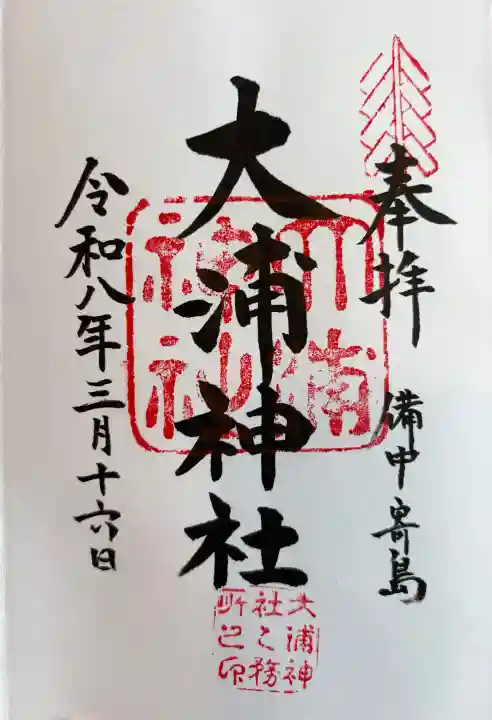 奉拝
備中寄島
大浦神社
令和八年三月十六日
大浦神社
大浦神
社之務
所之印